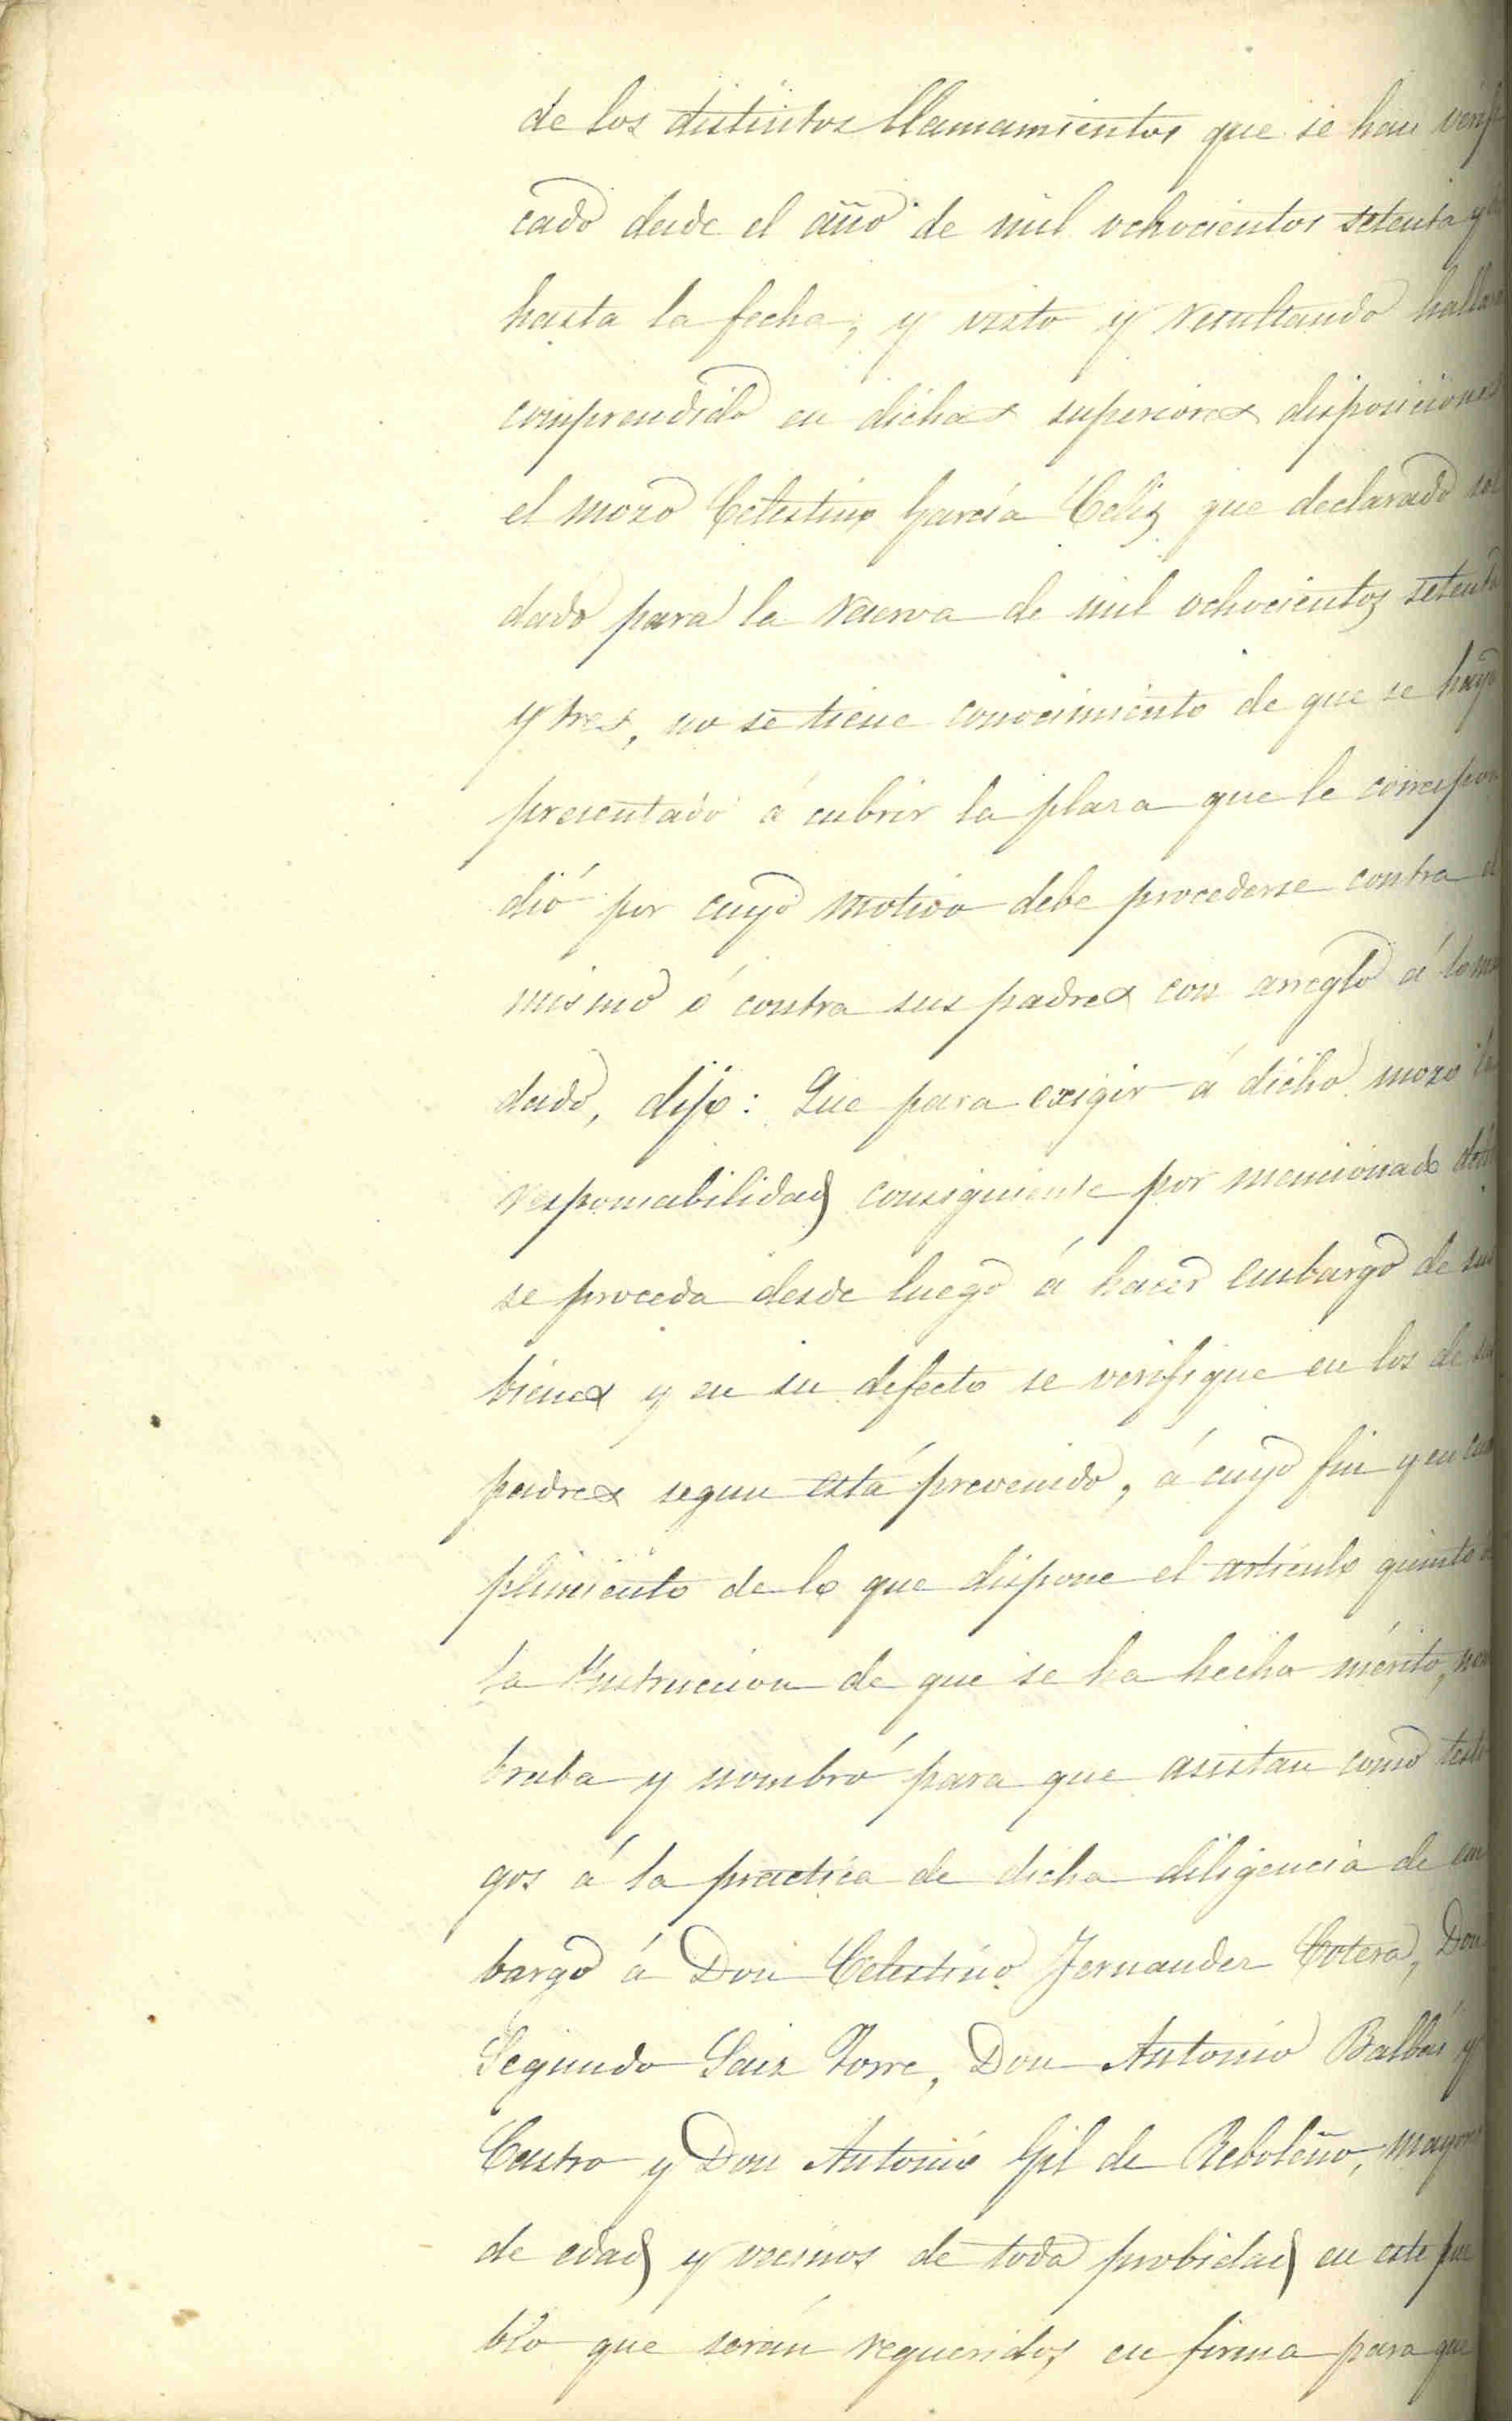 de los distintos llamamientos que se han verifi
cado desde el año de mil ochocientos setenta y
hasta la fecha; y visto y resultando hallar
comprendido en dichas superiores disposiciones
el mozo Celestino García Celis que declarado sol
dado para la reserva de mil ochocientos setenta
y tres, no se tiene conocimiento de que se haya
presentado á cubrir la plaza que le correspon
dió por cuyo motivo debe procederse contra el
mismo ó contra sus padres con arreglo á lo man
dado, dijo: Que para exigir á dicho mozo la
responsabilidad consiguiente por mencionado
se proceda desde luego á hacer embargo de sus
bienes y en su defecto se verifique en los de sus
padres segun está prevenido, á cuyo fin y en cum
plimiento de lo que dispone el artículo quinto de
la Instruccion de que se ha hecho mérito, nom
braba y nombró para que asistan como testi
gos á la practica de dicha diligencia de em
bargo á Don Celestino Fernandez Cotera, Don
Segundo Saiz Torre, Don Antonio Balbás y
Castro y Don Antonio Gil de Reboleño, mayores
de edad y vecinos de toda probidad en este pue
blo que serán requeridos en firma para que